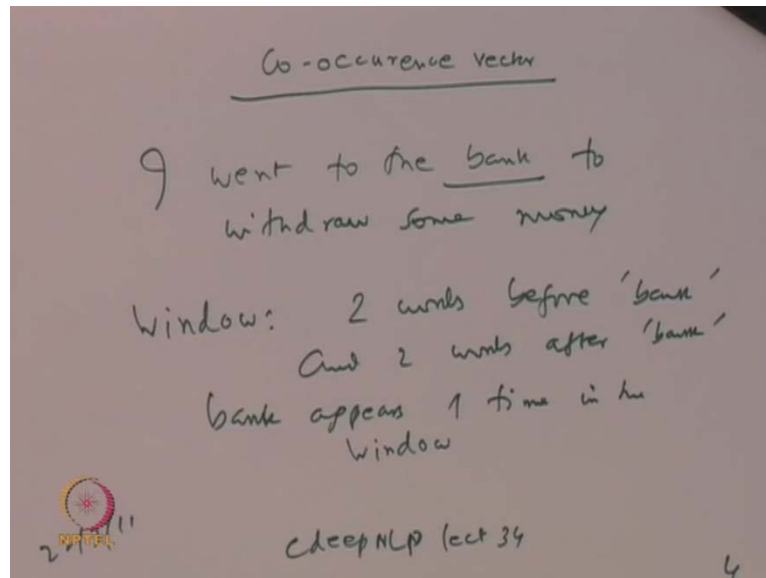 Co-occurence vector
I went to the bank to
withdraw some money
Window: 2 words before 'bank'
and 2 words after 'bank'
bank appears 1 time in the
window
NPTEL
cdeepNLP lect 34
4